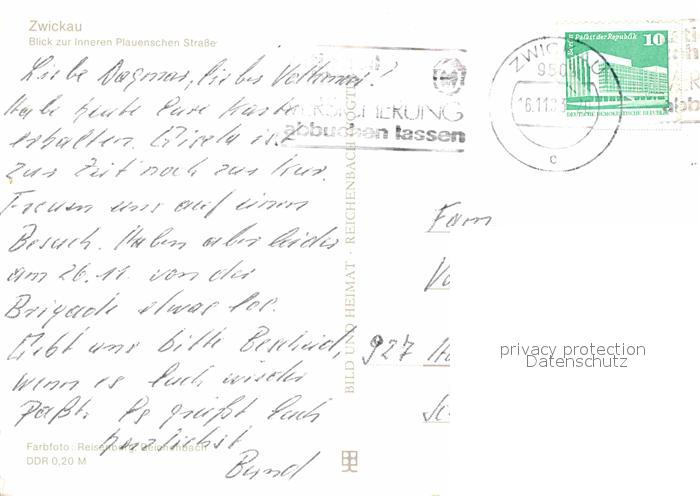 Zwickau
Blick zur Inneren Plauenschen Straße
Liebe Dagmar, lieber Volkmar!
Habe heute Eure Karte
erhalten. Gisela ist
zur Zeit noch zur Kur.
Freuen uns auf einen
Besuch. Haben aber leider
am 26.11. von der
Brigade etwas los.
Gebt uns bitte Bescheid,
wenn es Euch wieder
paßt. Es grüßt Euch
herzlichst
Bernd
Farbfoto: Reisenberg, Reichenbach
DDR 0,20 M
BILD UND HEIMAT · REICHENBACH VOGTL
VERSICHERUNG
abbuchen lassen
ZWICKAU
950
16.11.83
c
Berlin Palast der Republik
10
DEUTSCHE DEMOKRATISCHE REPUBLIK
Fam
927
privacy protection
Datenschutz